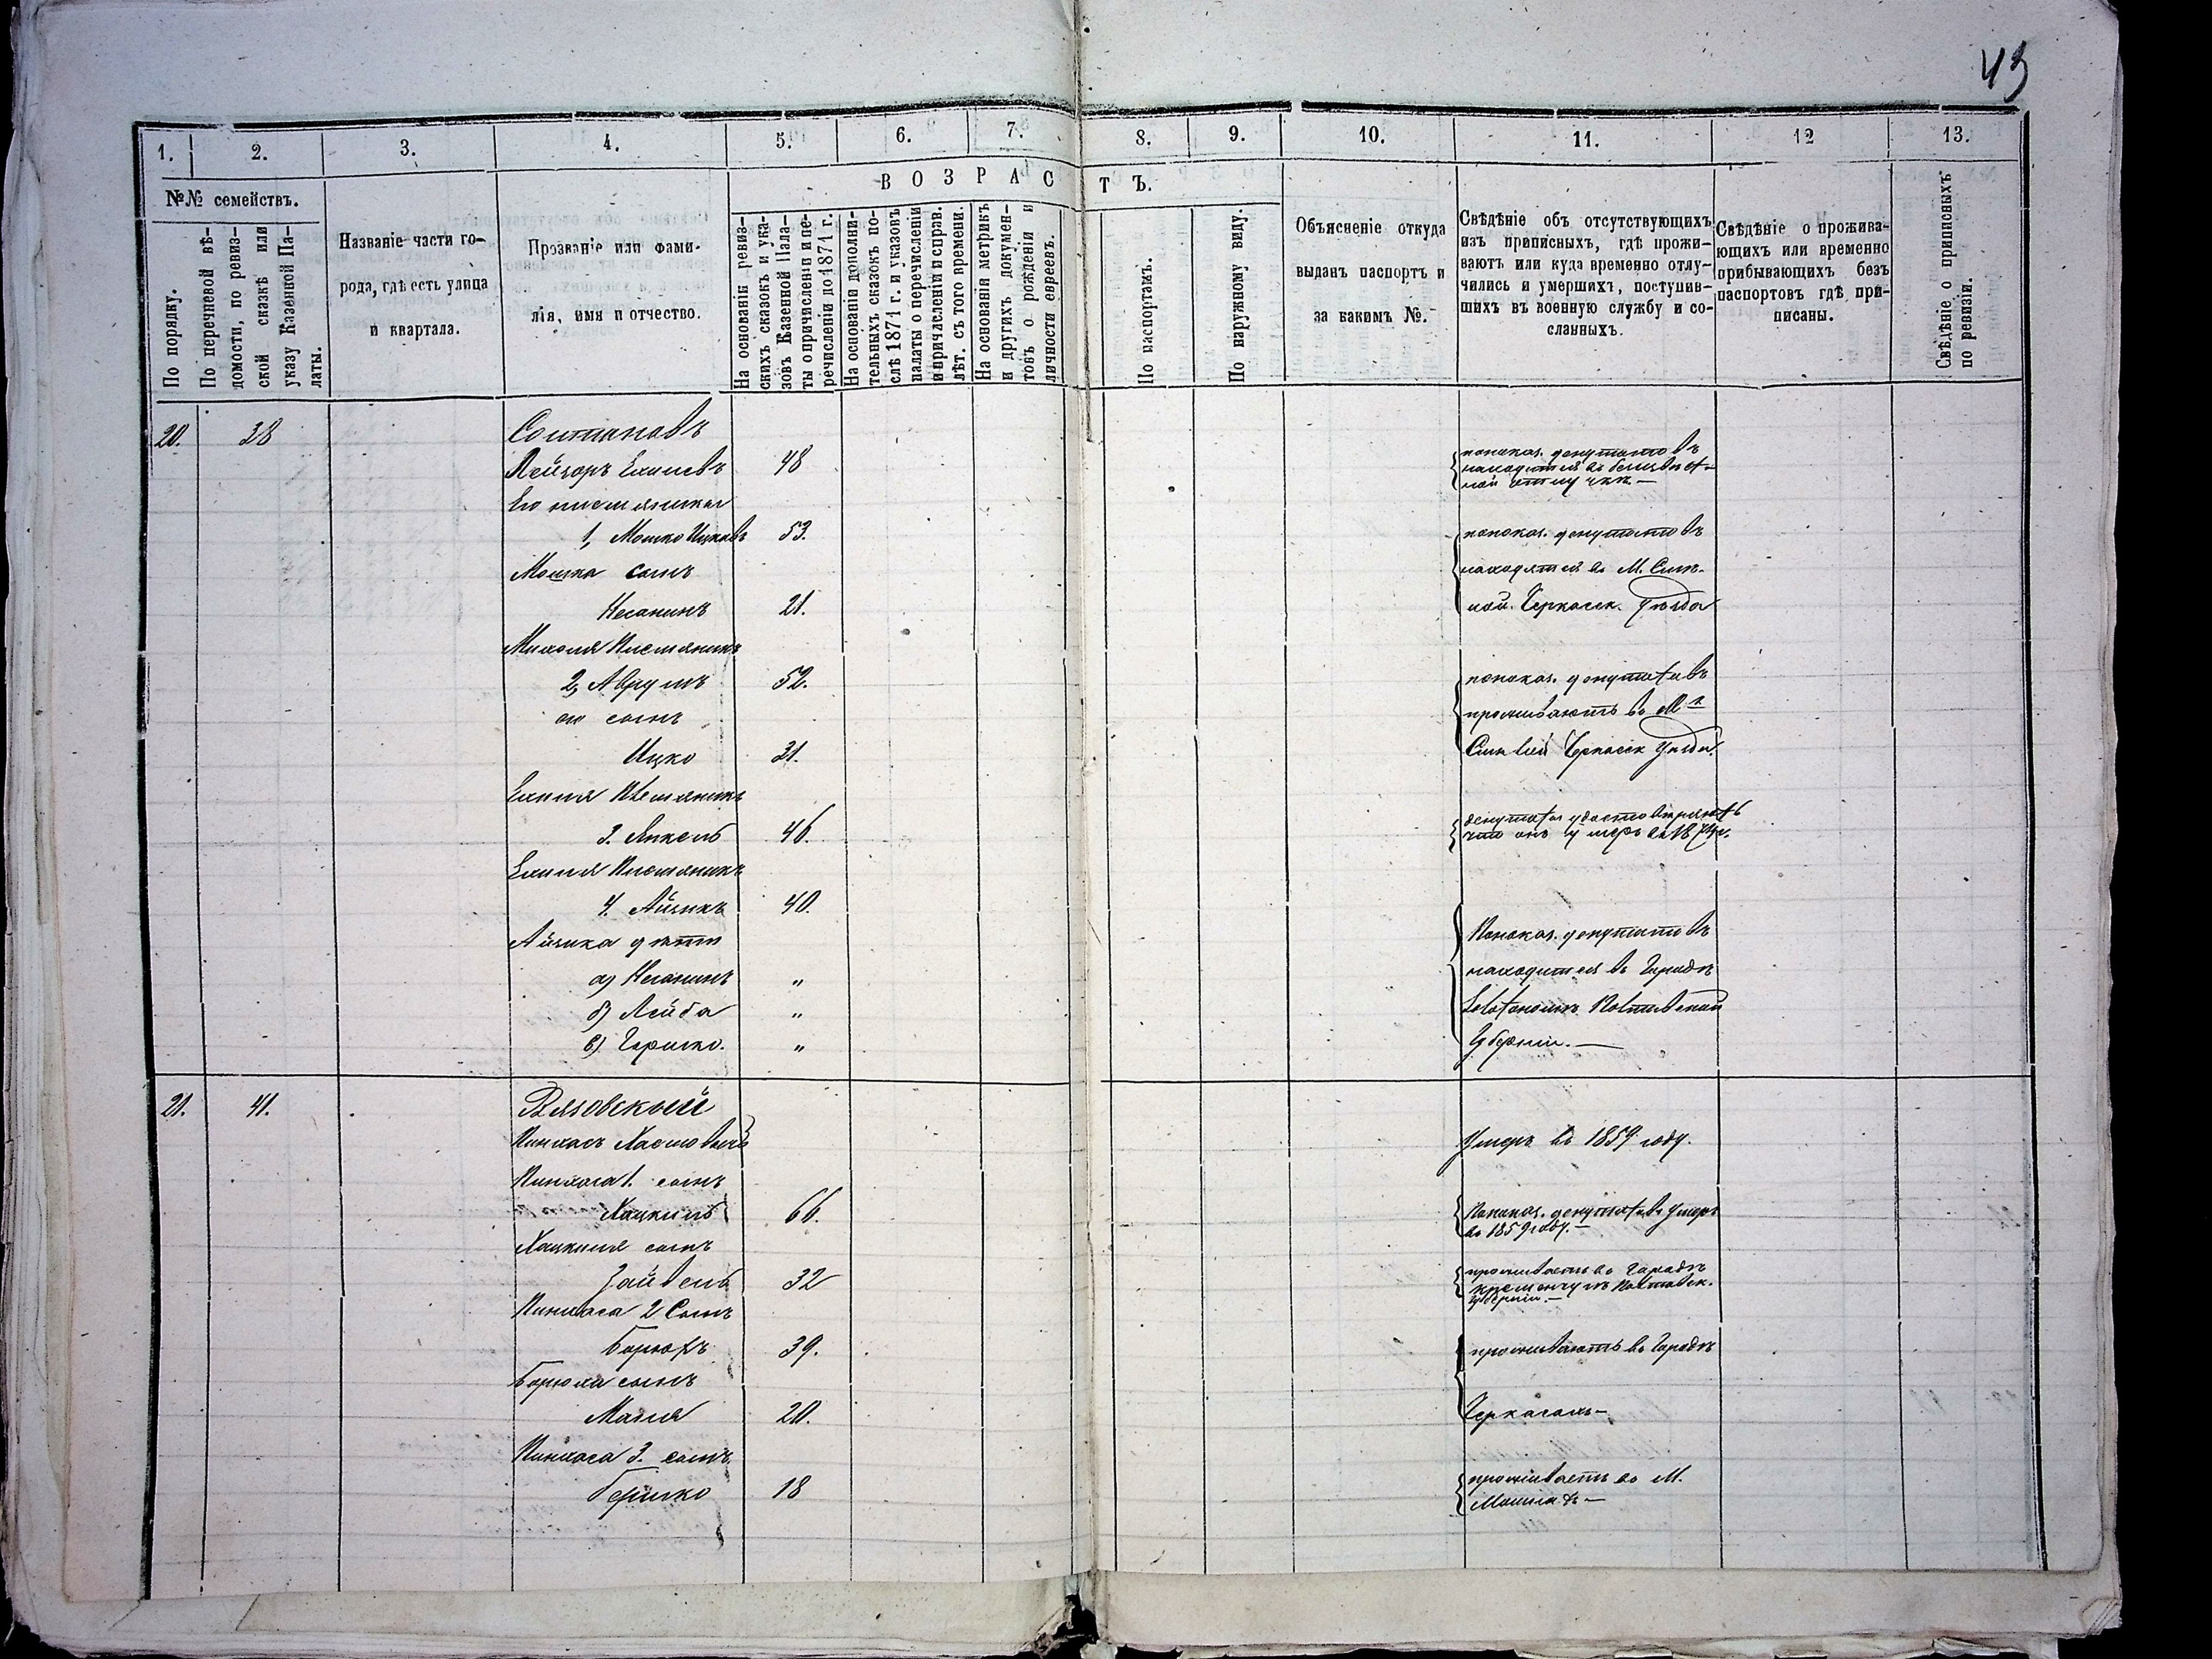 43
1.
2.
3.
4.
5.
6.
7.
8.
9.
10.
11.
12
13.
№№ семействъ.
По порядку.
По перечневой вѣ-
домости, по ревиз-
ской сказкѣ или
указу Казенной Па-
латы.
Названіе части го-
рода, гдѣ есть улица
и квартала.
Прозваніе или фами-
лія, имя и отчество.
ВОЗРАСТЪ.
На основаніи ревиз-
скихъ сказокъ и ука-
зовъ Казенной Пала-
ты о причисленіи и пе-
речисленіи до 1871 г.
На основаніи дополни-
тельныхъ сказокъ по-
слѣ 1871 г. и указовъ
палаты о перечисленіи
и причисленіи и справ.
лѣт. съ того времени.
На основаніи метрикъ
и другихъ докумен-
товъ о рожденіи и
личности евреевъ.
По паспортамъ.
По наружному виду.
Объясненіе откуда
выданъ паспортъ и
за какимъ №.
Свѣдѣніе объ отсутствующихъ
изъ приписныхъ, гдѣ прожи-
ваютъ или куда временно отлу-
чились и умершихъ, поступив-
шихъ въ военную службу и со-
сланныхъ.
Свѣдѣніе о прожива-
ющихъ или временно
прибывающихъ безъ
паспортовъ гдѣ при-
писаны.
Свѣдѣніе о приписныхъ
по ревизіи.
20. 38
Лейзоръ 48
показ. депутатовъ
находится въ безизвѣст-
ной отлучкѣ.—
Его племянники
1, Мошко Ицковъ 53.
показ. депутатовъ
Мошка сынъ
находятся въ М.
Несанинъ 21.
Черкасск. уѣзда
Племянникъ
2, Аврумъ 52.
показ. депутатовъ
его сынъ
проживаютъ въ Мѣ
Ицко 31.
Черкасск уѣзда.
Племянникъ
3. Янкель 46.
депутаты удостовѣряютъ
что онъ умеръ въ
Племянникъ
4. Айзикъ 40.
Айзика дѣти
Показ. депутатовъ
а) Несанинъ „
находится въ Городѣ
б) Лейба „
Полтавской
в) Гершко. „
Губерніи.—
21. 41.
Вязовскый
Пинхасъ
Умеръ въ 1859 году.
Пинхаса 1. сынъ
Хацкиль 66.
Показ. депутатовъ умеръ
въ 1859 году.—
Хацкиля сынъ
Зайвель 32
проживаетъ въ Городѣ
Кременчугѣ Полтавск.
губерніи.—
Пинхаса 2 Сынъ
Борюхъ 39.
проживаютъ въ Городѣ
Борюха сынъ
Маня 20.
Черкасахъ—
Пинхаса 3. сынъ
Гершко 18
проживаетъ въ М.